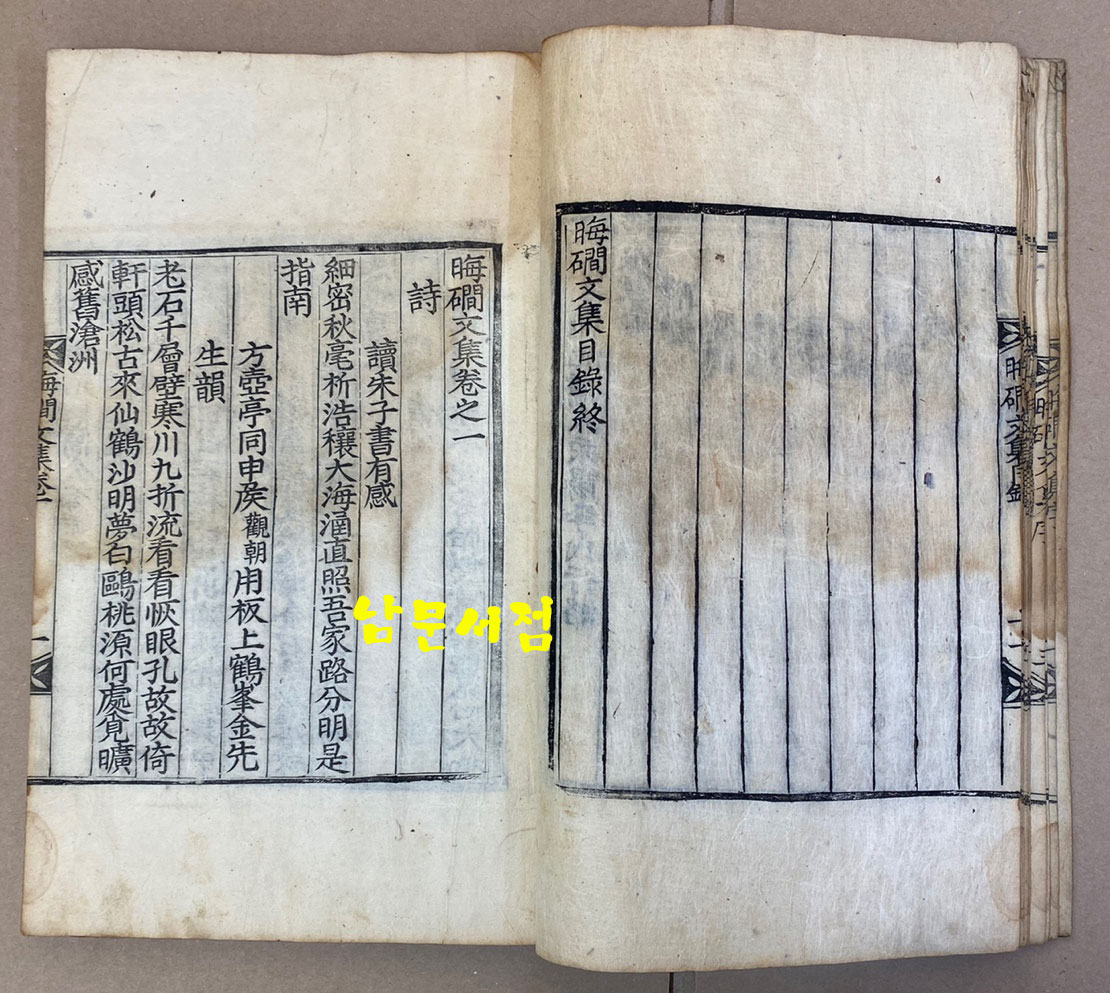 晦磵文集目錄終
晦磵文集卷之一
詩
讀朱子書有感
細密秋毫析浩穰大海涵直照吾家路分明是
指南
方壺亭同申矦觀朝用板上鶴峯金先
生韻
老石千層壁寒川九折流看看恢眼孔故故倚
軒頭松古來仙鶴沙明夢白鷗桃源何處覓曠
感舊滄洲
남문서점